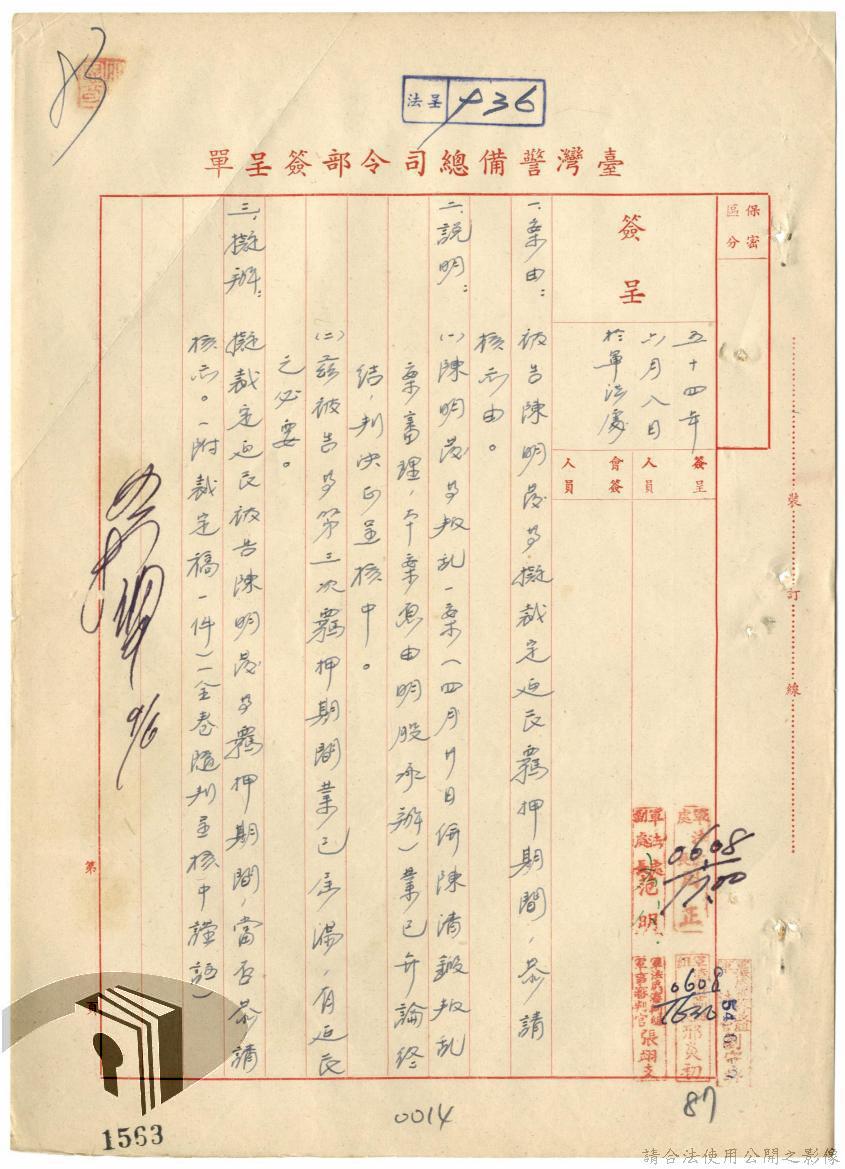 法呈 436
臺灣警備總司令部簽呈單
保密區分
簽呈
五十四年
六月八日
於軍法處
簽呈人員
會簽人員
一、案由：被告陳明發等擬裁定延長羈押期間，恭請
核示由。
二、說明：(一)陳明發等叛乱一案(四月廿日併陳清鍛叛乱
案審理，本案原由明股承辦)業已弁論終
結，判決正呈核中。
(二)茲被告等第三次羈押期間業已屆滿，有延長
之必要。
三、擬辦：擬裁定延長被告陳明發等羈押期間，當否恭請
核示。(附裁定稿一件)(全卷隨判呈核中謹註)
9/6
裝訂線
軍法處副處長范明
0608
1700
軍法處審判組軍事審判官張翊支
0608
1630
邢炎初
第
頁
87
0014
1563
請合法使用公開之影像